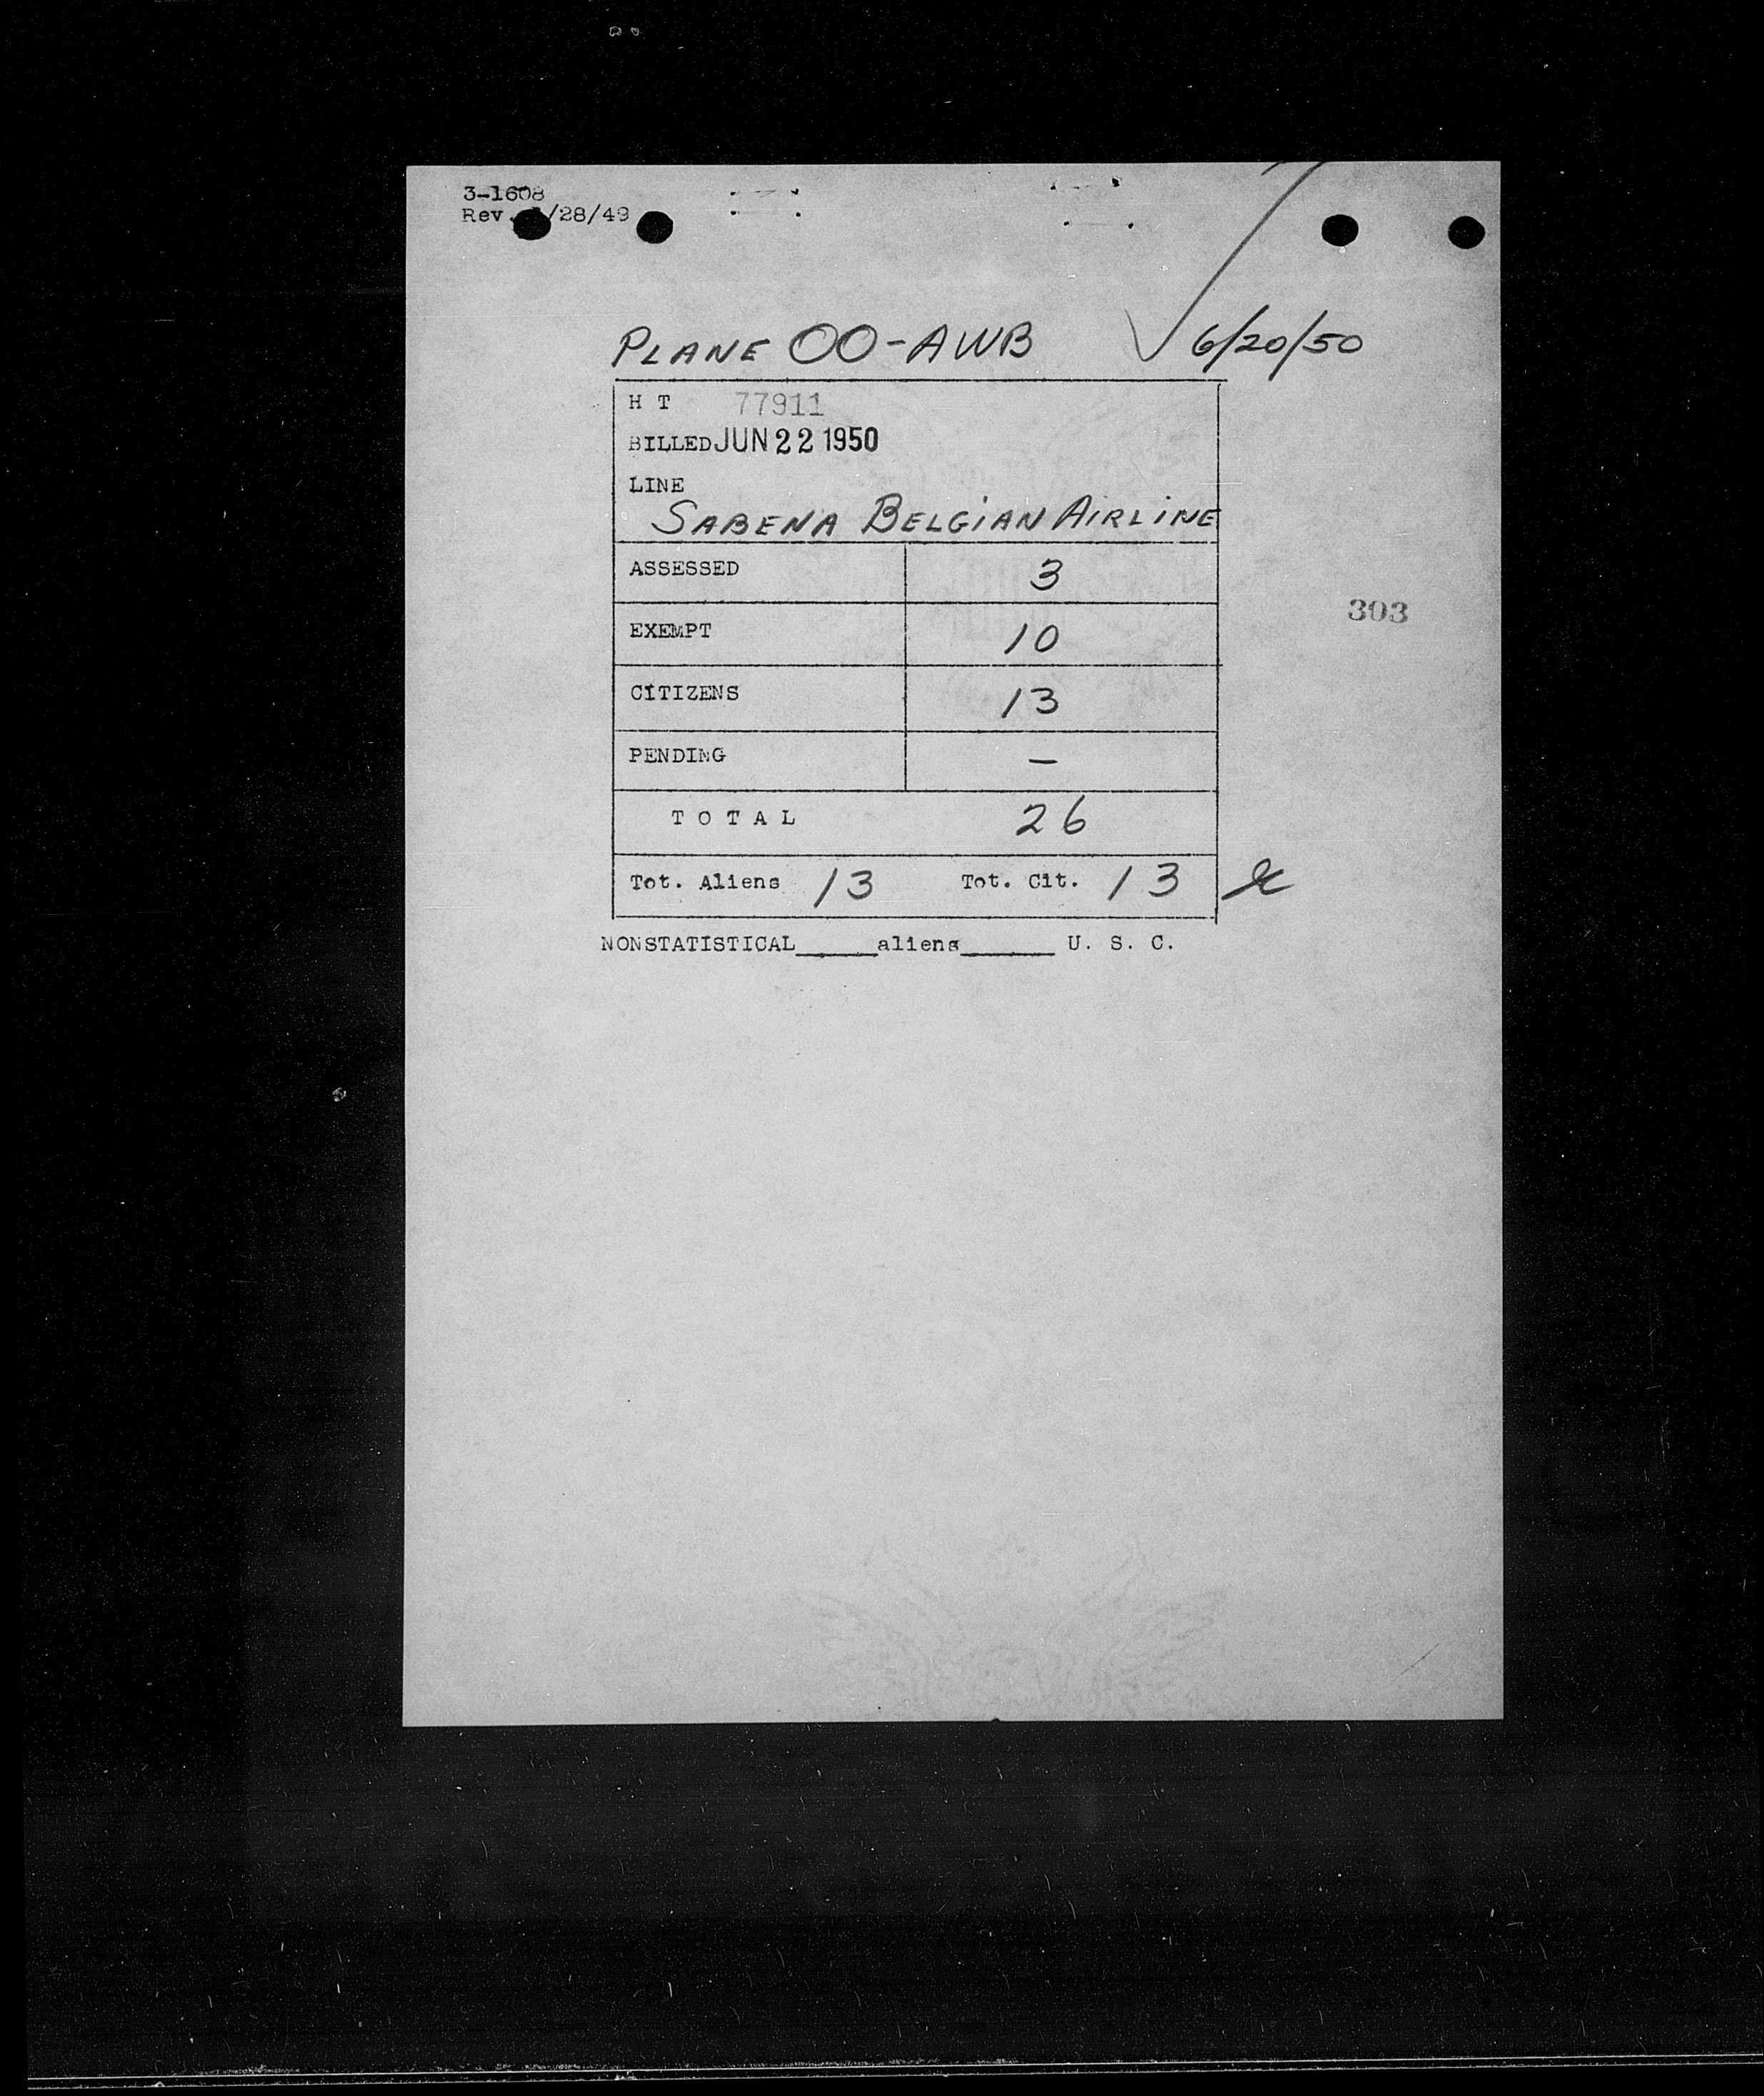 3-1608
Rev. /28/49
PLANE OO-AWB 6/20/50
H T 77911
BILLED JUN 22 1950
LINE
SABENA BELGIAN AIRLINE
ASSESSED 3
303
EXEMPT 10
CITIZENS 13
PENDING —
T O T A L 26
Tot. Aliens 13 Tot. Cit. 13
NONSTATISTICAL_____aliens______ U. S. C.